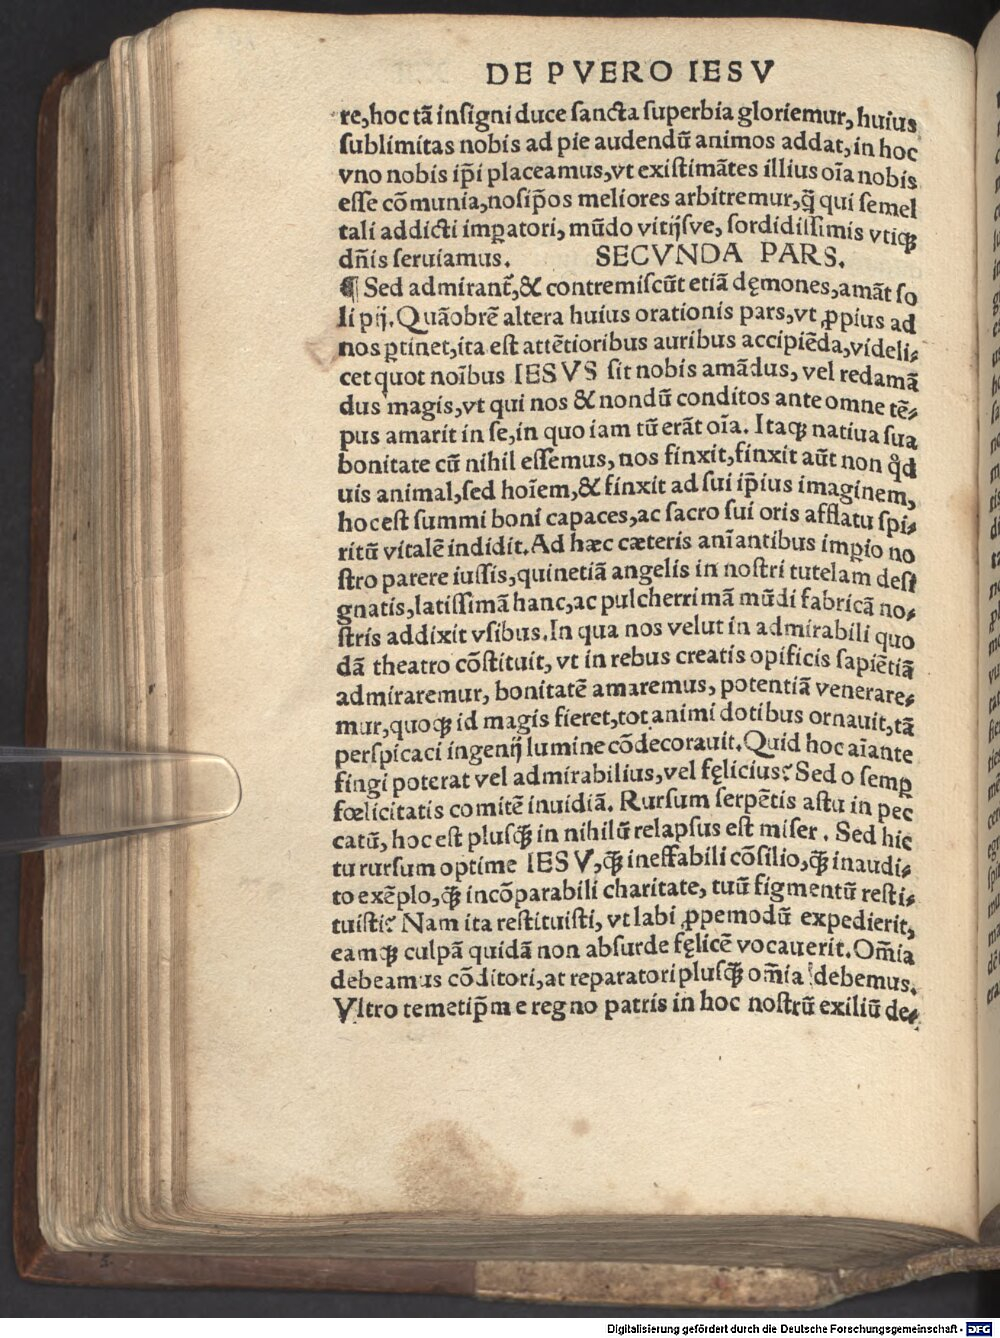 DE PVERO IESV
re,hoc tã insigni duce sancta superbia gloriemur, huius
sublimitas nobis ad pie audendũ animos addat, in hoc
vno nobis ip̃i placeamus, vt existimãtes illius oĩa nobis
esse cõmunia, nosip̃os meliores arbitremur, q̃ qui semel
tali addicti imꝑatori, mũdo vitijsve, sordidissimis vtiqꝫ
dñis seruiamus. SECVNDA PARS.
¶ Sed admirant᷑, & contremiscũt etiã dęmones, amãt so
li pij. Quãobrẽ altera huius orationis pars, vt ꝓpius ad
nos ꝑtinet, ita est attẽtioribus auribus accipiẽda, videli⸗
cet quot noĩbus IESVS sit nobis amãdus, vel redamã
dus magis, vt qui nos & nondũ conditos ante omne tẽ⸗
pus amarit in se, in quo iam tũ erãt oĩa. Itaqꝫ natiua sua
bonitate cũ nihil essemus, nos finxit, finxit aũt non qͦd
uis animal, sed hoĩem, & finxit ad sui ip̃ius imaginem,
hoc est summi boni capaces, ac sacro sui oris afflatu spi⸗
ritũ vitalẽ indidit. Ad hæc cæteris anĩantibus impio no
stro parere iussis, quinetiã angelis in nostri tutelam desi
gnatis, latissimã hanc, ac pulcherrimã mũdi fabricã no⸗
stris addixit vsibus. In qua nos velut in admirabili quo
dã theatro cõstituit, vt in rebus creatis opificis sapiẽtiã
admiraremur, bonitatẽ amaremus, potentiã venerare⸗
mur, quoqꝫ id magis fieret, tot animi dotibus ornauit, tã
perspicaci ingenij lumine cõdecorauit. Quid hoc aĩante
fingi poterat vel admirabilius, vel fęlicius? Sed o semꝑ
fœlicitatis comitẽ inuidiã. Rursum serpẽtis astu in pec
catũ, hoc est plusqꝫ̃ in nihilũ relapsus est miser. Sed hic
tu rursum optime IESV, qꝫ̃ ineffabili cõsilio, qꝫ̃ inaudi⸗
to exẽplo, qꝫ̃ incõparabili charitate, tuũ figmentũ resti⸗
tuisti? Nam ita restituisti, vt labi ꝓpemodũ expedierit,
eamqꝫ culpã quidã non absurde fęlicẽ vocauerit. Om̃ia
debeamus cõditori, at reparatori plusqꝫ̃ om̃ia debemus.
Vltro temetip̃m e regno patris in hoc nostrũ exiliũ de⸗
Digitalisierung gefördert durch die Deutsche Forschungsgemeinschaft - DFG